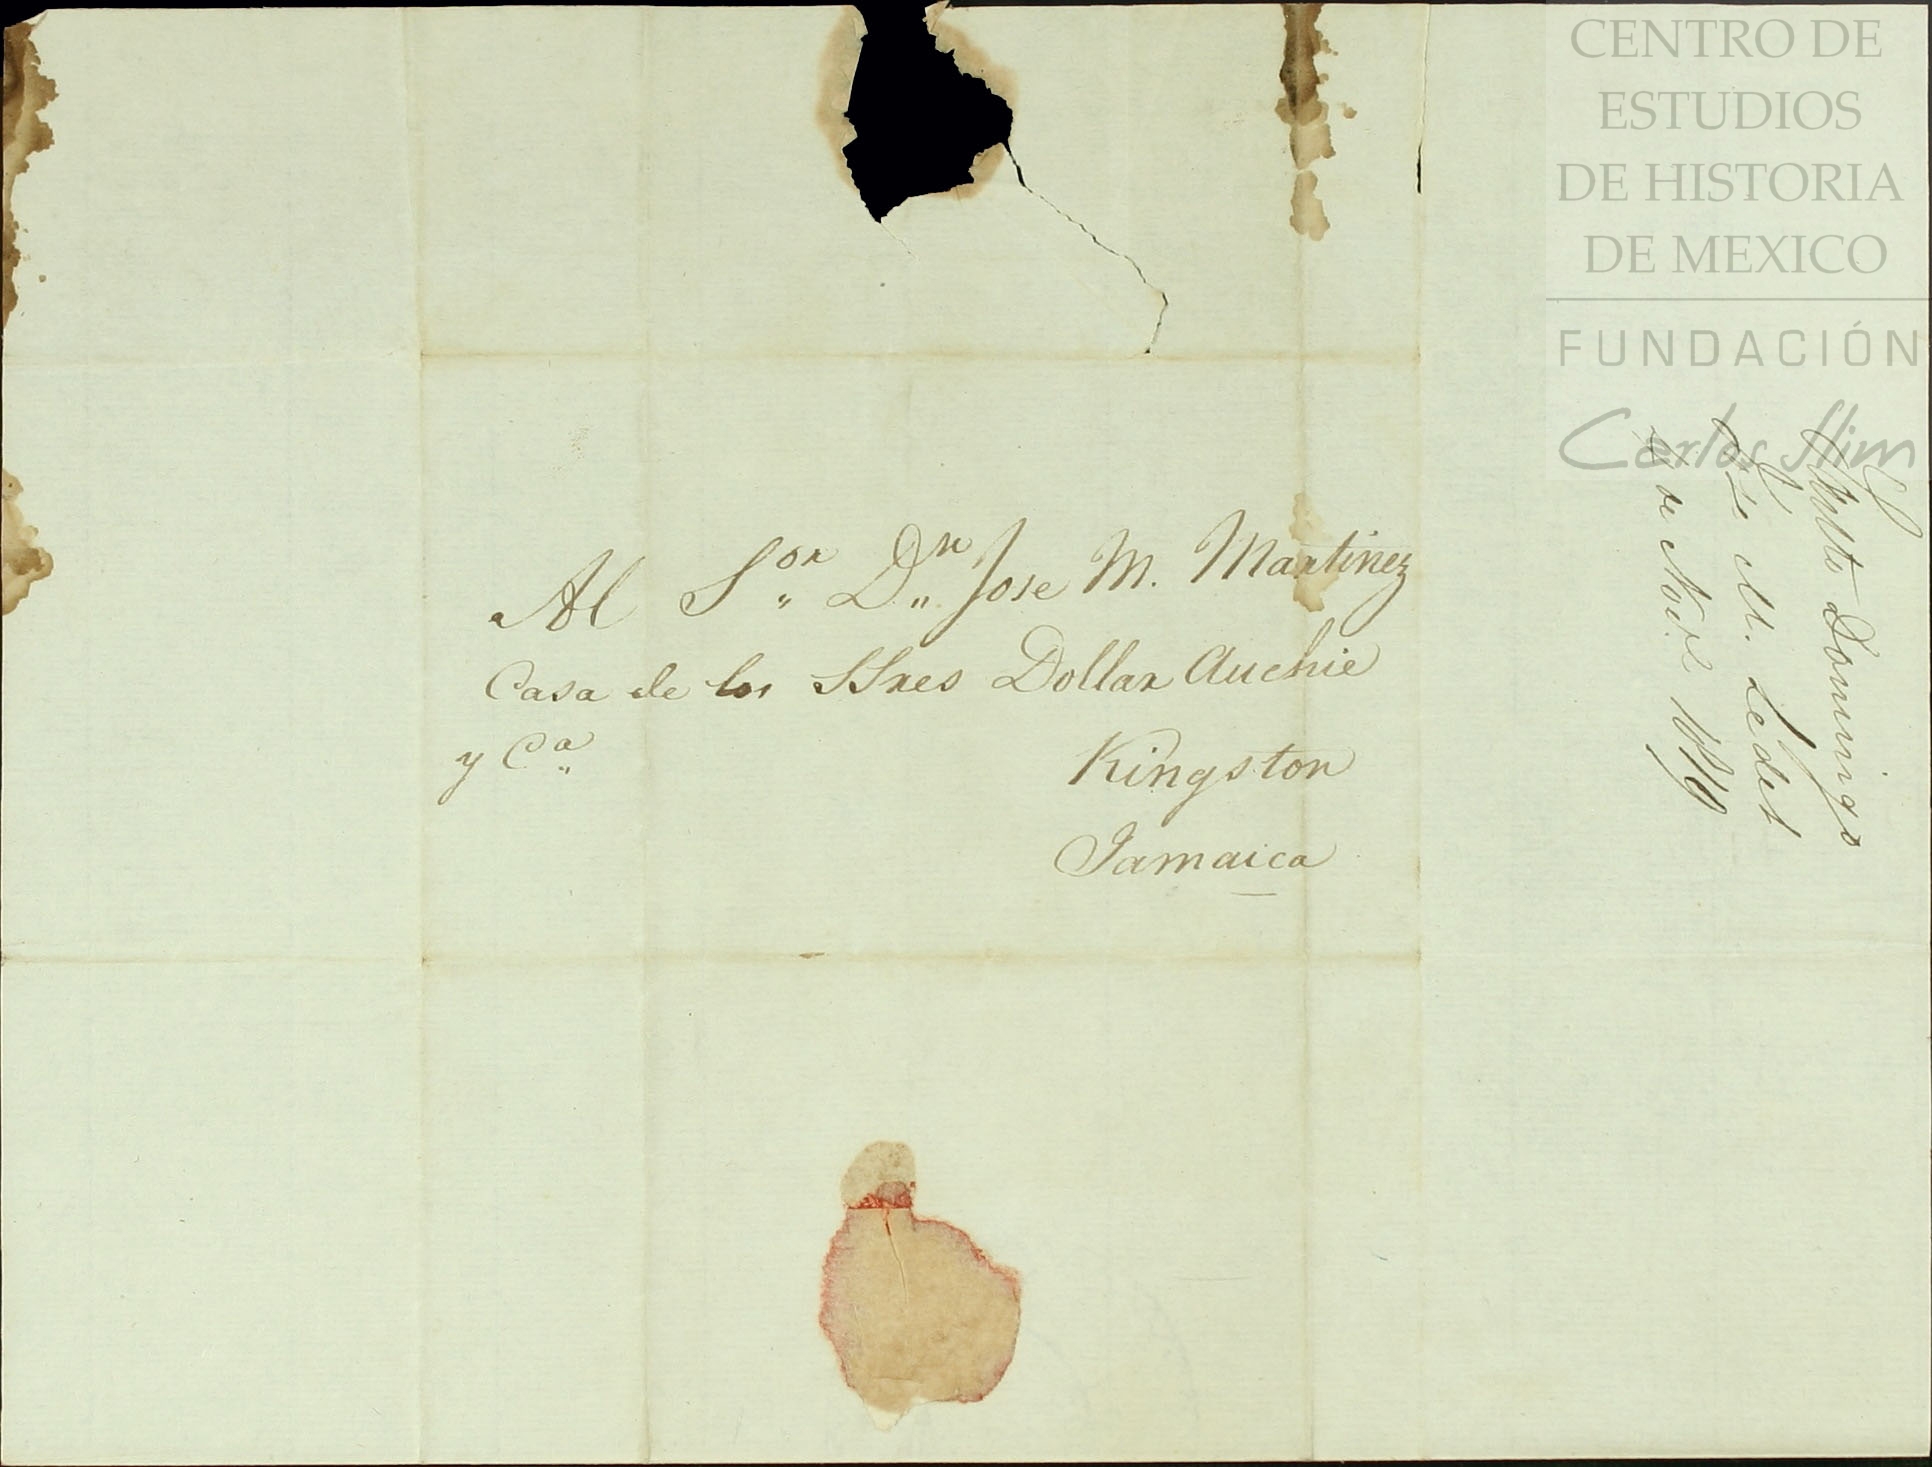 CENTRO DE
ESTUDIOS
DE HISTORIA
DE MEXICO
FUNDACIÓN
Carlos Slim
Al S.or D.n Jose M. Martinez
Casa de los SSres Dollar Auchie
y C.a
Kingston
Jamaica
Santo Domingo
José M.
de Nov.e 1819